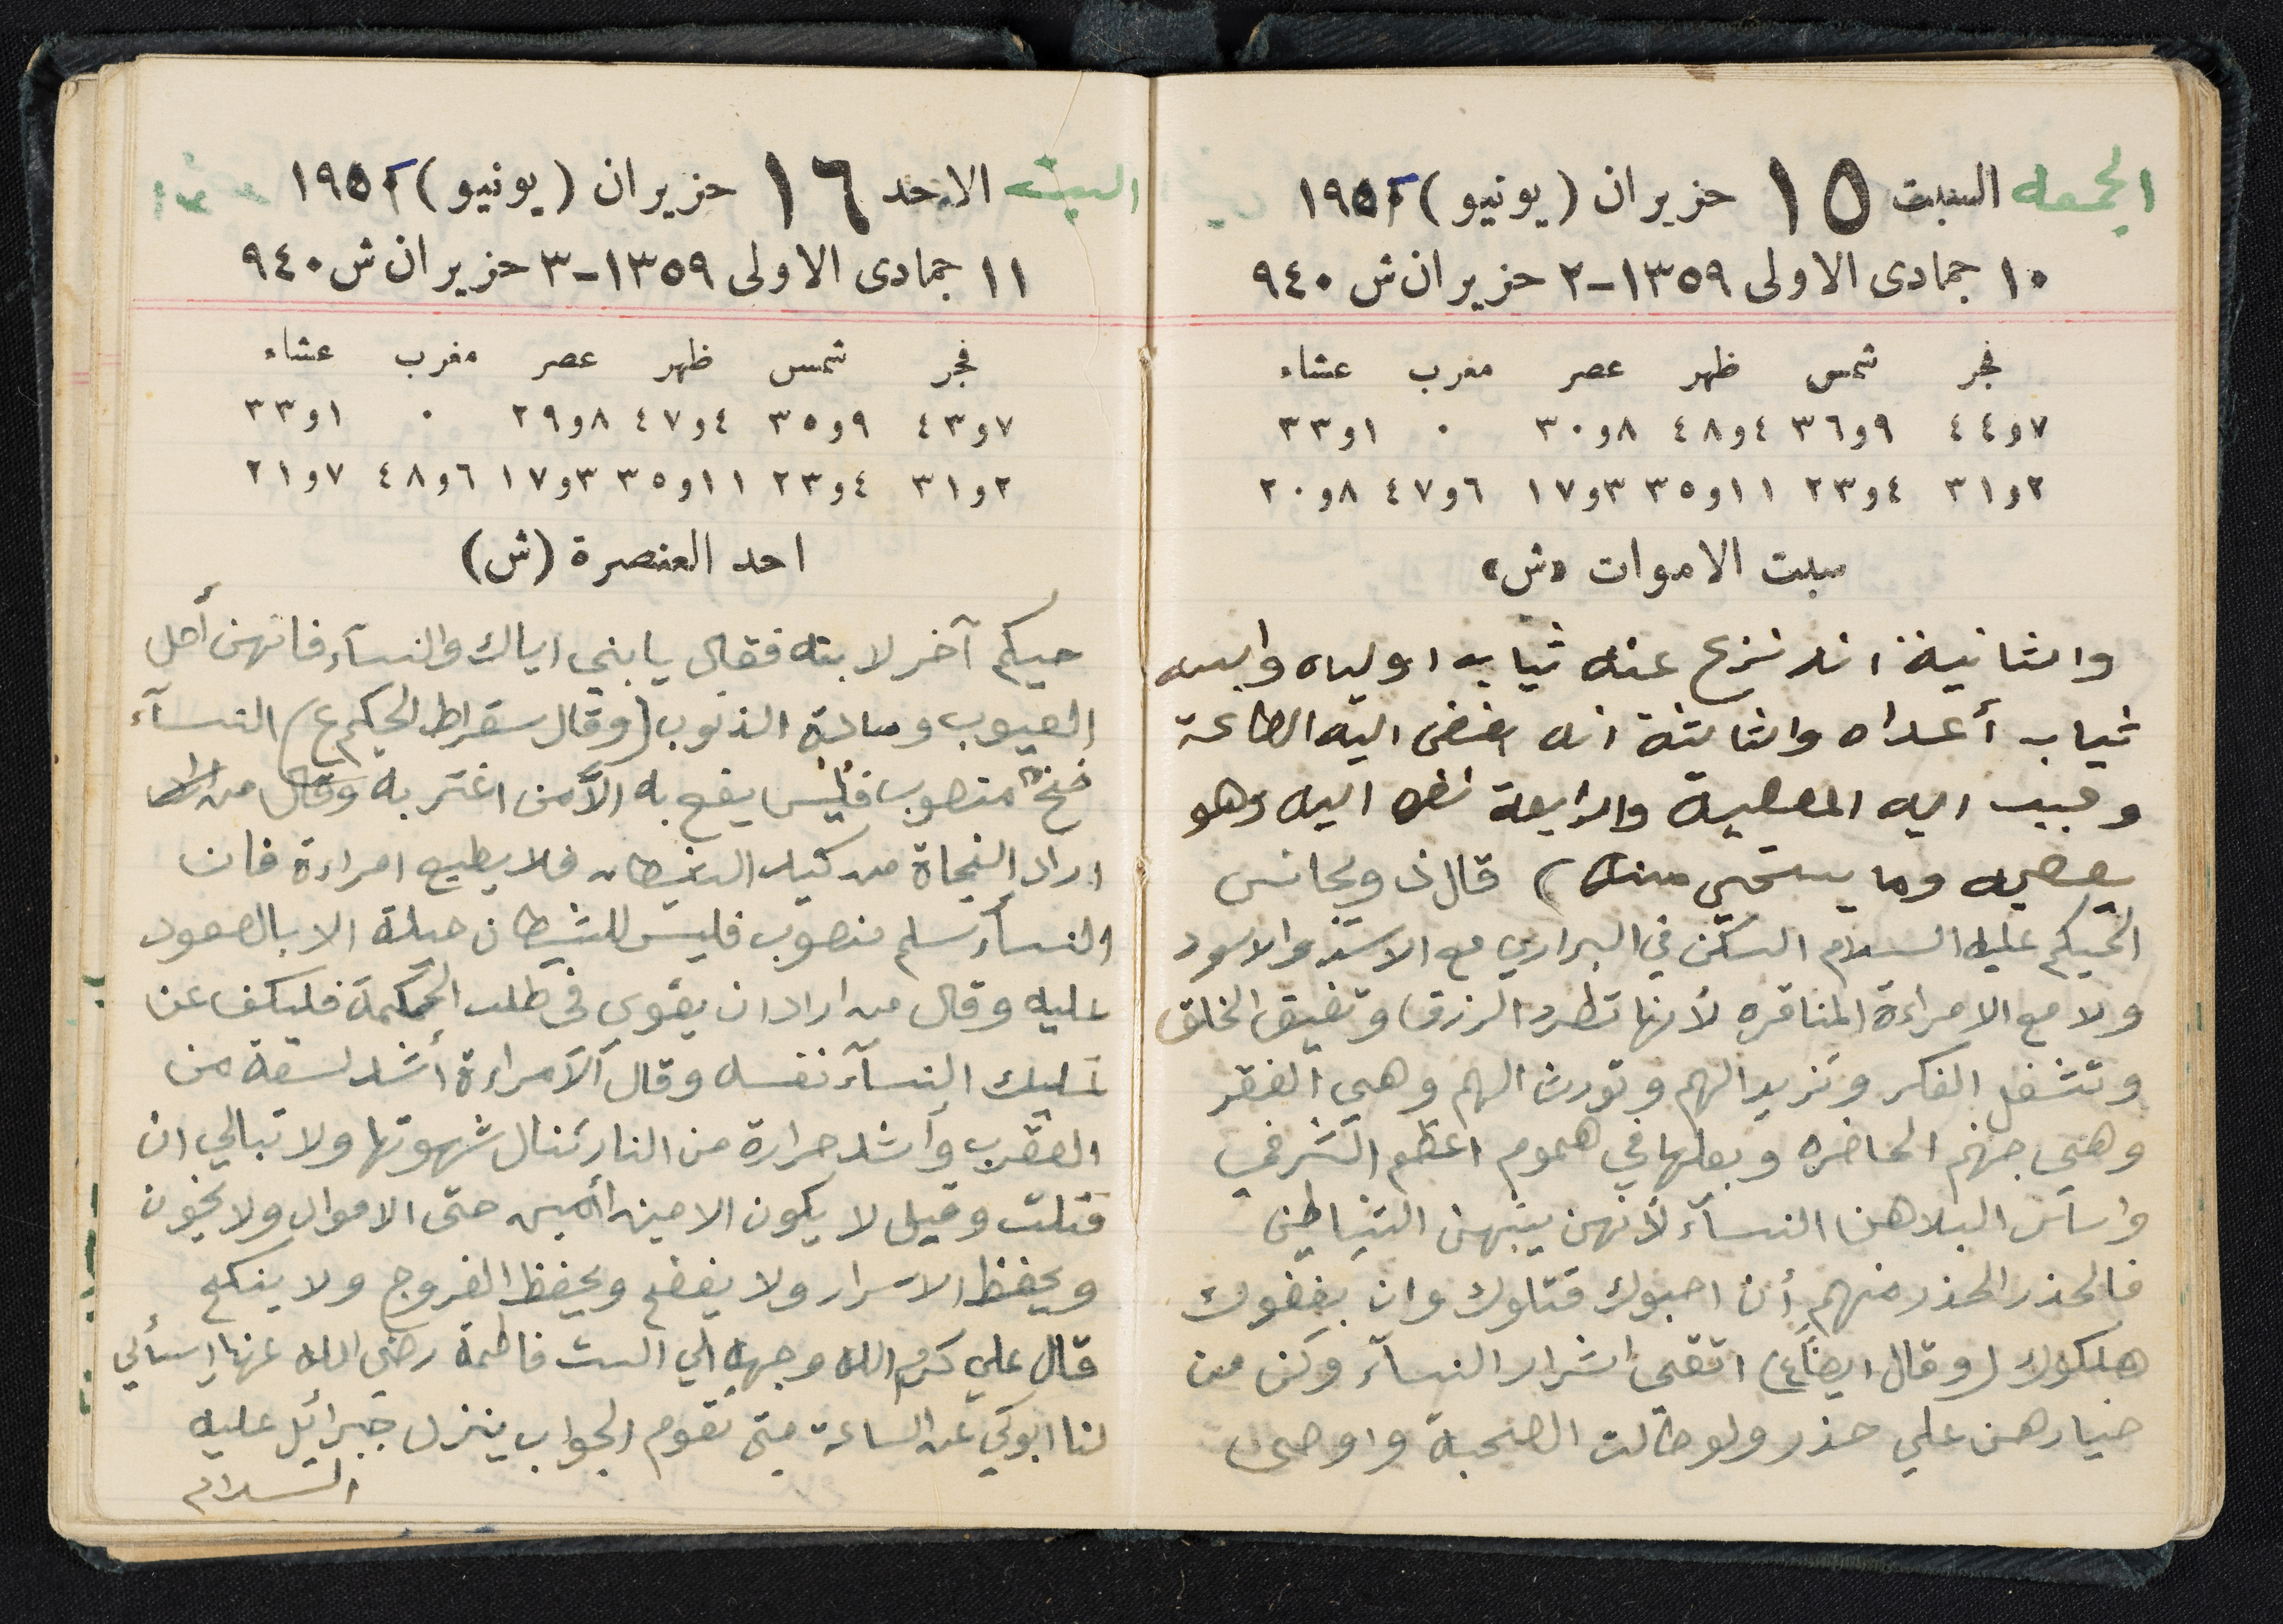 الجمعه السبت ١٥ حزيران (يونيو) ١٩٥٢
١٠ جمادى الاولى ١٣٥٩-٢ حزيران ش ٩٤٠
فجر شمس ظهر عصر مغرب عشاء
٧و٤٤ ٩و٣٦ ٤و٤٨ ٨و٣٠ ٠ ١و٣٣
٢و٣١ ٤و٢٣ ١١و٣٥ ٣و١٧ ٦و٤٧ ٨و٢٠
سبت الاموات «ش»
والثانية انه نزع عنه ثياب اولياه والبسه
ثياب أعداه والثالثة انه ابغض اليه الطاعة
وحبب اليه المعصية والرابعة نظره اليه وهو
يعصيه وما يستحي منه) قال ذويجانس
الحيكم عليه السلام السكن في البراري مع الاسد والاسود
ولا مع الامراءة المناقره لأنها تطرد الرزق وتضيق الخلق
وتشغل الفكر وتزيد الهم وتورث الهم وهي الفقر
وهي جهنم الحاضره وبعلها في هموم اعظم الشر في
واساس البلا هن النسآء لأنهن ينبهن الشياطين
فالحذر الحذر منهم أن احبوك قتلوك وان بغضوك
هلكوك (وقال ايضاً ع) اتقي اشرار النسآء وكن من
خيارهن علي حذر ولو طالت الصحبة واوصى
السبت الاحد ١٦ حزيران (يونيو) ١٩٥٢
١١ جمادى الاولى ١٣٥٩-٣ حزيران ش ٩٤٠
فجر شمس ظهر عصر مغرب عشاء
٧و٤٣ ٩و٣٥ ٤و٤٧ ٨و٢٩ ٠ ١و٣٣
٢و٣١ ٤و٢٣ ١١و٣٥ ٣و١٧ ٦و٤٨ ٧و٢١
احد العنصرة (ش)
حيكم آخر لابنه فقال يا بني اياك والنسآء فانهن أهل
العيوب ومادة الذنوب (وقال سقراط الحيكم ع) النسآء
فخ منصوب فليس يقع به الاّ من اغتر به وقال من
اراد النجاة من كيد الشيطان فلا يطيع امراءة فان
النسآء سلم منصوب فليس للشيطان حيلة الا بالصعود
عليه وقال من اراد ان يقوي في طلب الحكمة فليكف عن
تمليك النسآء نفسه وقال الامراءة أشد لسعة من
العقرب وأشد حرارة من النار تنال شهوتها ولا تبالي ان
قتلت وقيل لا يكون الامين امين حتى الاموال ولا يخون
ويحفظ الاسرار ولا يفضح ويحفظ الفروج ولا ينكح
قال علي كرم الله وجهه الي الست فاطمة رضي الله عنها إسألي
لنا ابوكي عن الساعة متى تقوم الجواب ينزل جبرائيل عليه
السلام